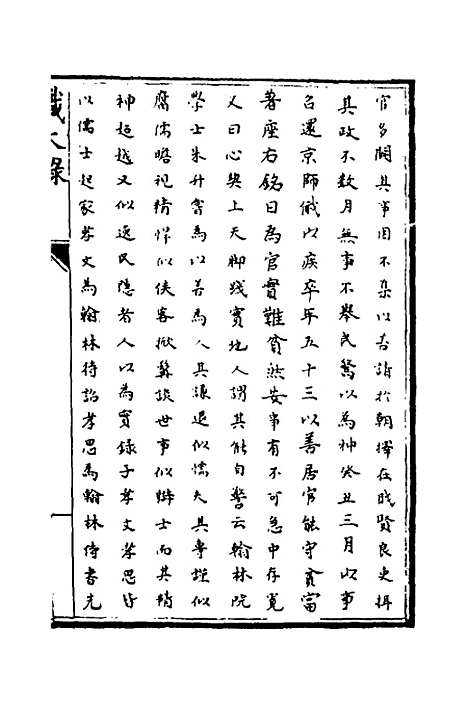 官多闕其事因不集以善請於朝擇在職賢良史揖
其政不數月無事不舉民驚以為神癸丑三月以事
召還京師俄以疾卒年五十三以善居官能守貧富
著座右銘曰為官實難貧然安事有不可急中存寬
又曰心契上天脚踐實地人謂其能自警云翰林院
學士朱升嘗為以善為人其謙退似懦夫其專謹似
腐儒瞻視精悍似俠客掀髯談世事似辯士而其精
神超越又似逸民隱者人以為實錄子孝文孝思皆
以儒士起家孝文為翰林待詔孝思為翰林侍書先